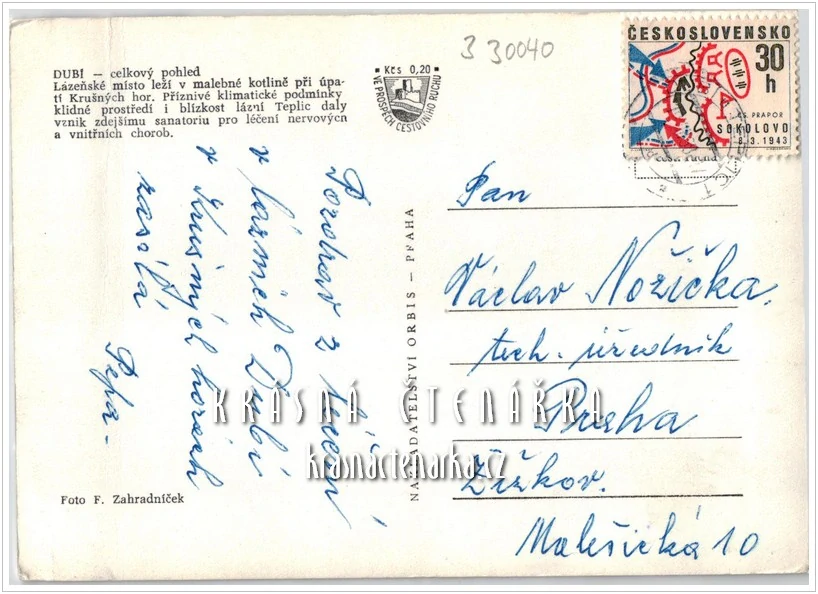 3 30040
DUBÍ — celkový pohled
Lázeňské místo leží v malebné kotlině při úpa-
tí Krušných hor. Příznivé klimatické podmínky
klidné prostředí i blízkost lázní Teplic daly
vznik zdejšímu sanatoriu pro léčení nervových
a vnitřních chorob.
Kčs 0,20
VE PROSPĚCH CESTOVNÍHO RUCHU
ČESKOSLOVENSKO
30
h
ČS. PRAPOR
SOKOLOVO
8.3.1943
Pozdrav z léčení
v lázních Dubí
v Krušných horách
zasílá
Pepa-
NAKLADATELSTVÍ ORBIS — PRAHA
Pan
Václav Nožička,
tech. úředník
Praha
Žižkov.
Malešická 10
KRÁSNÁ ČTENÁŘKA
krasnactenarka.cz
Foto F. Zahradníček